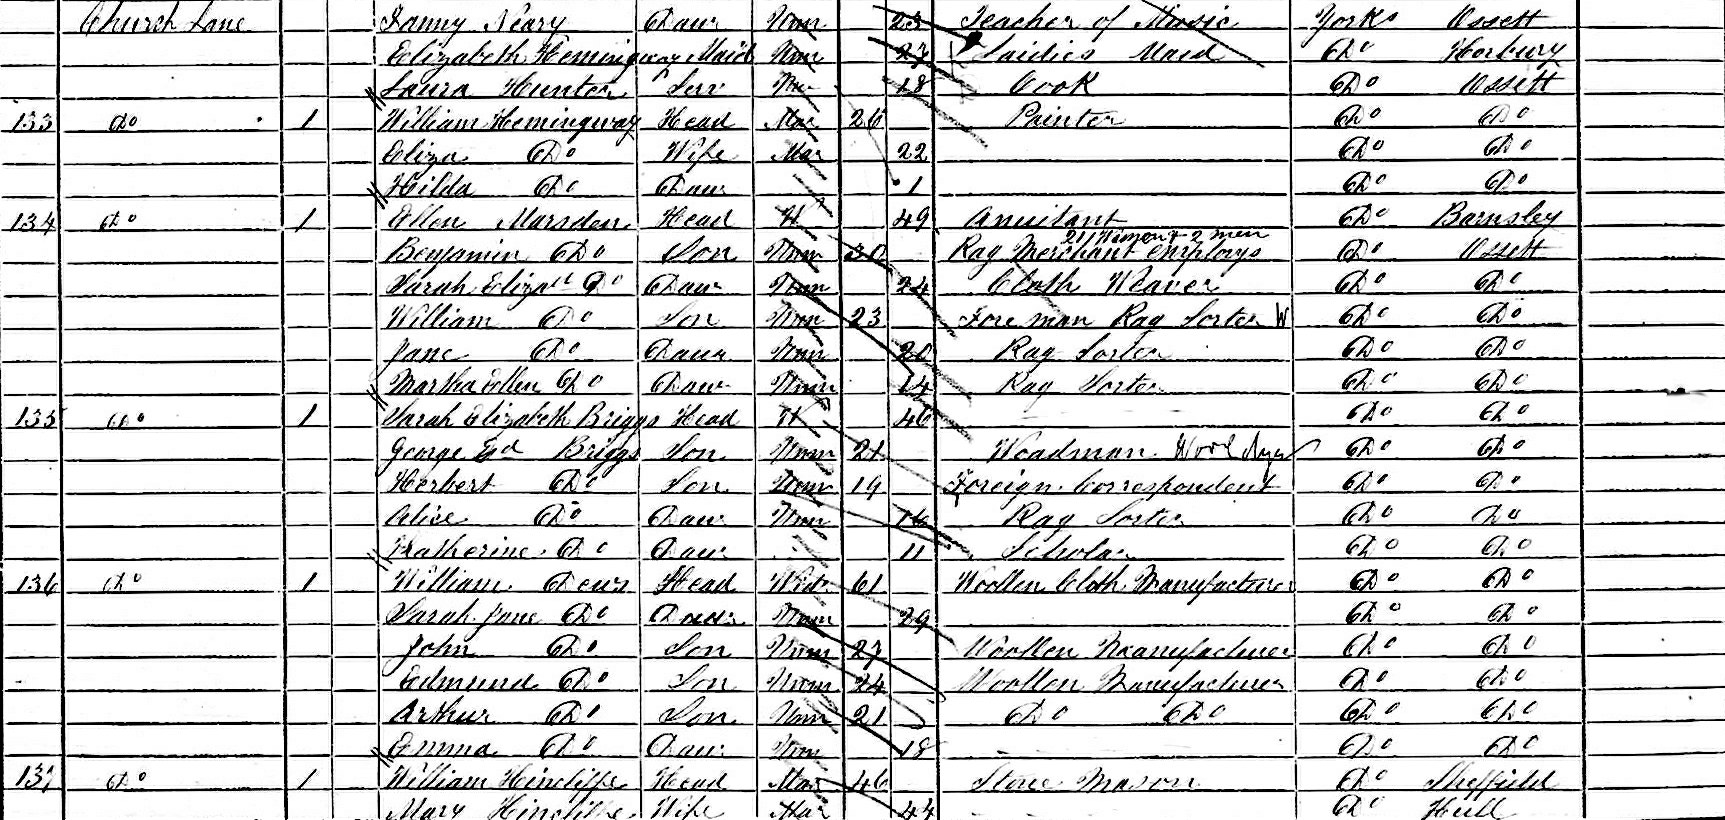 Church Lane Fanny Neary Daur Unm 23 Teacher of Music Yorks Ossett
Elizabeth Hemingway Maid Unm 27 Laidies Maid Do Horbury
Laura Hunter Serv Un 18 Cook Do Ossett
133 Do 1 William Hemingway Head Mar 26 Painter Do Do
Eliza Do Wife Mar 22 Do Do
Hilda Do Daur 1 Do Do
134 Do 1 Ellen Marsden Head W 49 Anuitant Do Barnsley
21 Women & 2 men
Benjamin Do Son Unm 30 Rag Merchant employs Do Ossett
Sarah Elizath Do Daur Unm 24 Cloth Weaver Do Do
William Do Son Unm 23 Fore man Rag Sorter W Do Do
Jane Do Daur Unm 20 Rag Sorter Do Do
Martha Ellen Do Daur Unm 14 Rag Sorter Do Do
135 Do 1 Sarah Elizabeth Briggs Head W 46 Do Do
George Ed Briggs Son Unm 21 Woadman Wool Dyer Do Do
Herbert Do Son Unm 19 Foreign Correspondent Do Do
Alice Do Daur Unm 16 Rag Sorter Do Do
Katherine Do Daur 11 Scholar Do Do
136 Do 1 William Dews Head Wid 61 Woollen Cloth Manufacturer Do Do
Sarah Jane Do Daur Unm 29 Do Do
John Do Son Unm 27 Woollen Manufacturer Do Do
Edmund Do Son Unm 24 Woollen Manufacturer Do Do
Arthur Do Son Unm 21 Do Do Do Do
Emma Do Daur Unm 18 Do Do
137 Do 1 William Hincliffe Head Mar 46 Stone Mason Do Sheffield
Mary Hincliffe Wife Mar 44 Do Hull